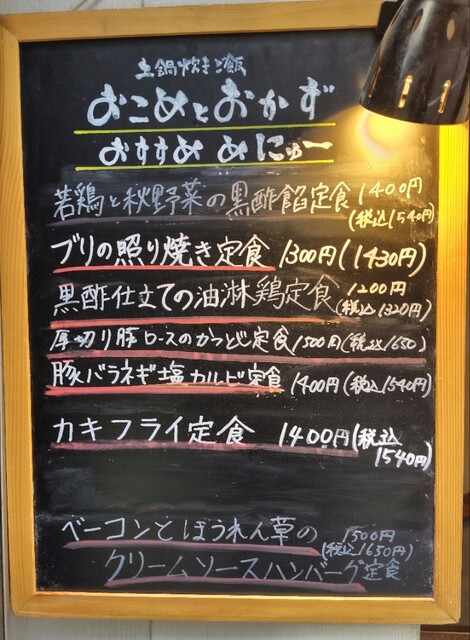 土鍋炊きご飯
おこめとおかず
おすすめ めにゅー
若鶏と秋野菜の黒酢餡定食 1400円
(税込1540円)
ブリの照り焼き定食 1300円(1430円)
黒酢仕立ての油淋鶏定食 1200円
(税込1320円)
厚切り豚ロースのかつとじ定食 1500円(税込1650)
豚バラネギ塩カルビ定食 1400円(税込1540円)
カキフライ定食 1400円(税込
1540円)
ベーコンとほうれん草の 1500円
(税込1650円)
クリームソースハンバーグ定食